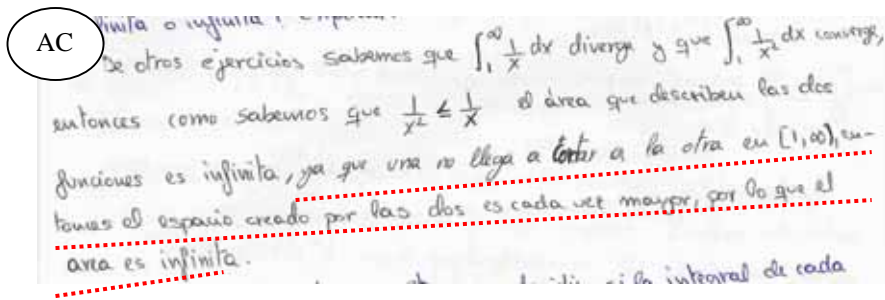 AC
De otros ejercicios sabemos que ∫₁^∞ 1/x dx diverge y que ∫₁^∞ 1/x² dx converge,
entonces como sabemos que 1/x² ≤ 1/x el área que describen las dos
funciones es infinita, ya que una no llega a cortar a la otra en [1,∞), en-
tonces el espacio creado por las dos es cada vez mayor, por lo que el
area es infinita.
si la integral de cada